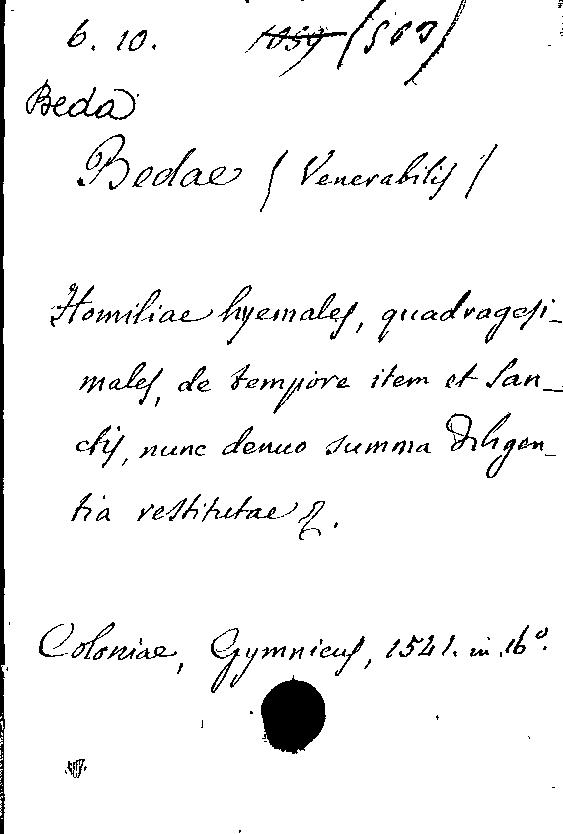 6. 10. 1059 (507)
Beda
Bedae (Venerabilis)
Homiliae hyemales, quadragesi-
males, de tempore item et San-
ctis, nunc denuo summa Diligen-
tia restitutae
Coloniae, Gymnicus, 1541. in 16º.